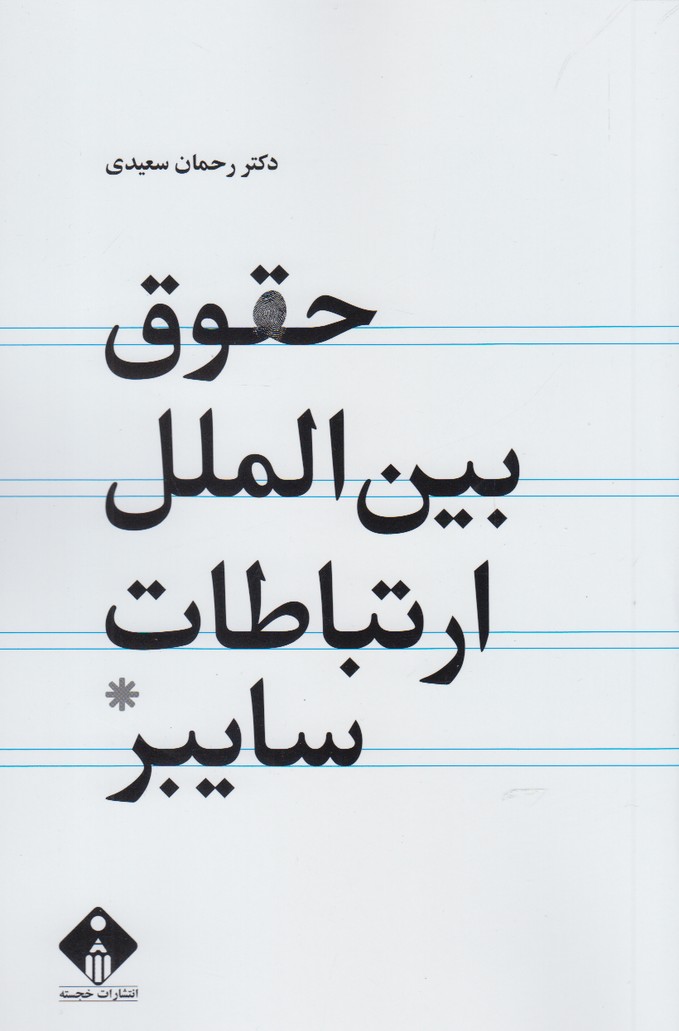 دکتر رحمان سعیدی
حقوق
بین‌الملل
ارتباطات
سایبر*
انتشارات خجسته